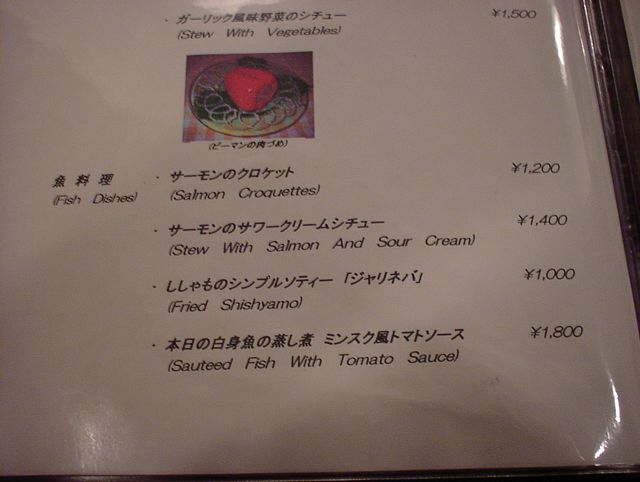 ・ ガーリック風味野菜のシチュー ¥1,500
(Stew With Vegetables)
(ピーマンの肉づめ)
魚 料 理 ・ サーモンのクロケット ¥1,200
(Fish Dishes) (Salmon Croquettes)
・ サーモンのサワークリームシチュー ¥1,400
(Stew With Salmon And Sour Cream)
・ ししゃものシンプルソティー 「ジャリネバ」 ¥1,000
(Fried Shishyamo)
・ 本日の白身魚の蒸し煮 ミンスク風トマトソース ¥1,800
(Sauteed Fish With Tomato Sauce)